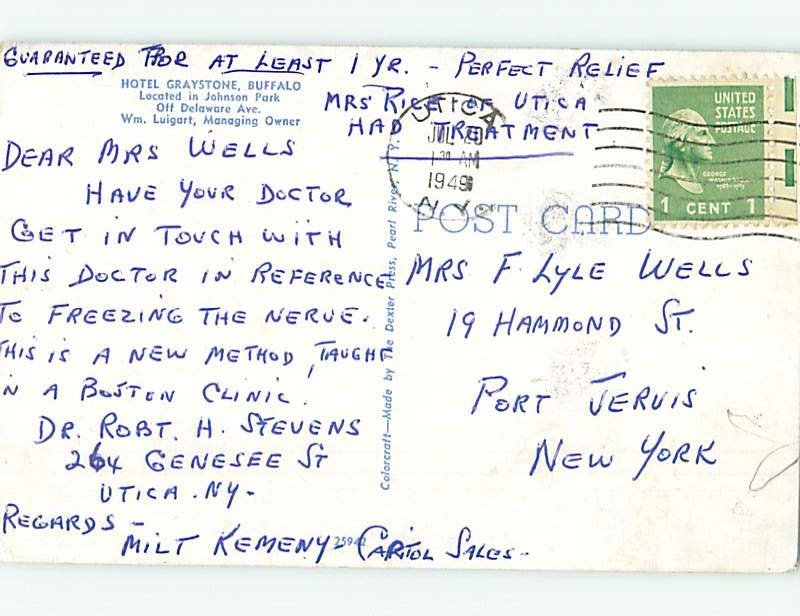 GUARANTEED FOR AT LEAST 1 YR. - PERFECT RELIEF
MRS RICE OF UTICA
HAD TREATMENT
HOTEL GRAYSTONE, BUFFALO
Located in Johnson Park
Off Delaware Ave.
Wm. Luigart, Managing Owner
DEAR MRS WELLS
HAVE YOUR DOCTOR
GET IN TOUCH WITH
THIS DOCTOR IN REFERENCE
TO FREEZING THE NERVE.
THIS IS A NEW METHOD, TAUGHT
IN A BOSTON CLINIC.
DR. ROBT. H. STEVENS
264 GENESEE ST
UTICA. NY-
REGARDS -
MILT KEMENY - CAPITOL SALES-
Colorcraft—Made by The Dexter Press, Pearl River, N. Y.
UTICA
JUL 20
1949
N.Y.
UNITED
STATES
POSTAGE
GEORGE
WASHINGTON
1 CENT 1
POST CARD
MRS F LYLE WELLS
19 HAMMOND ST.
PORT JERVIS
NEW YORK